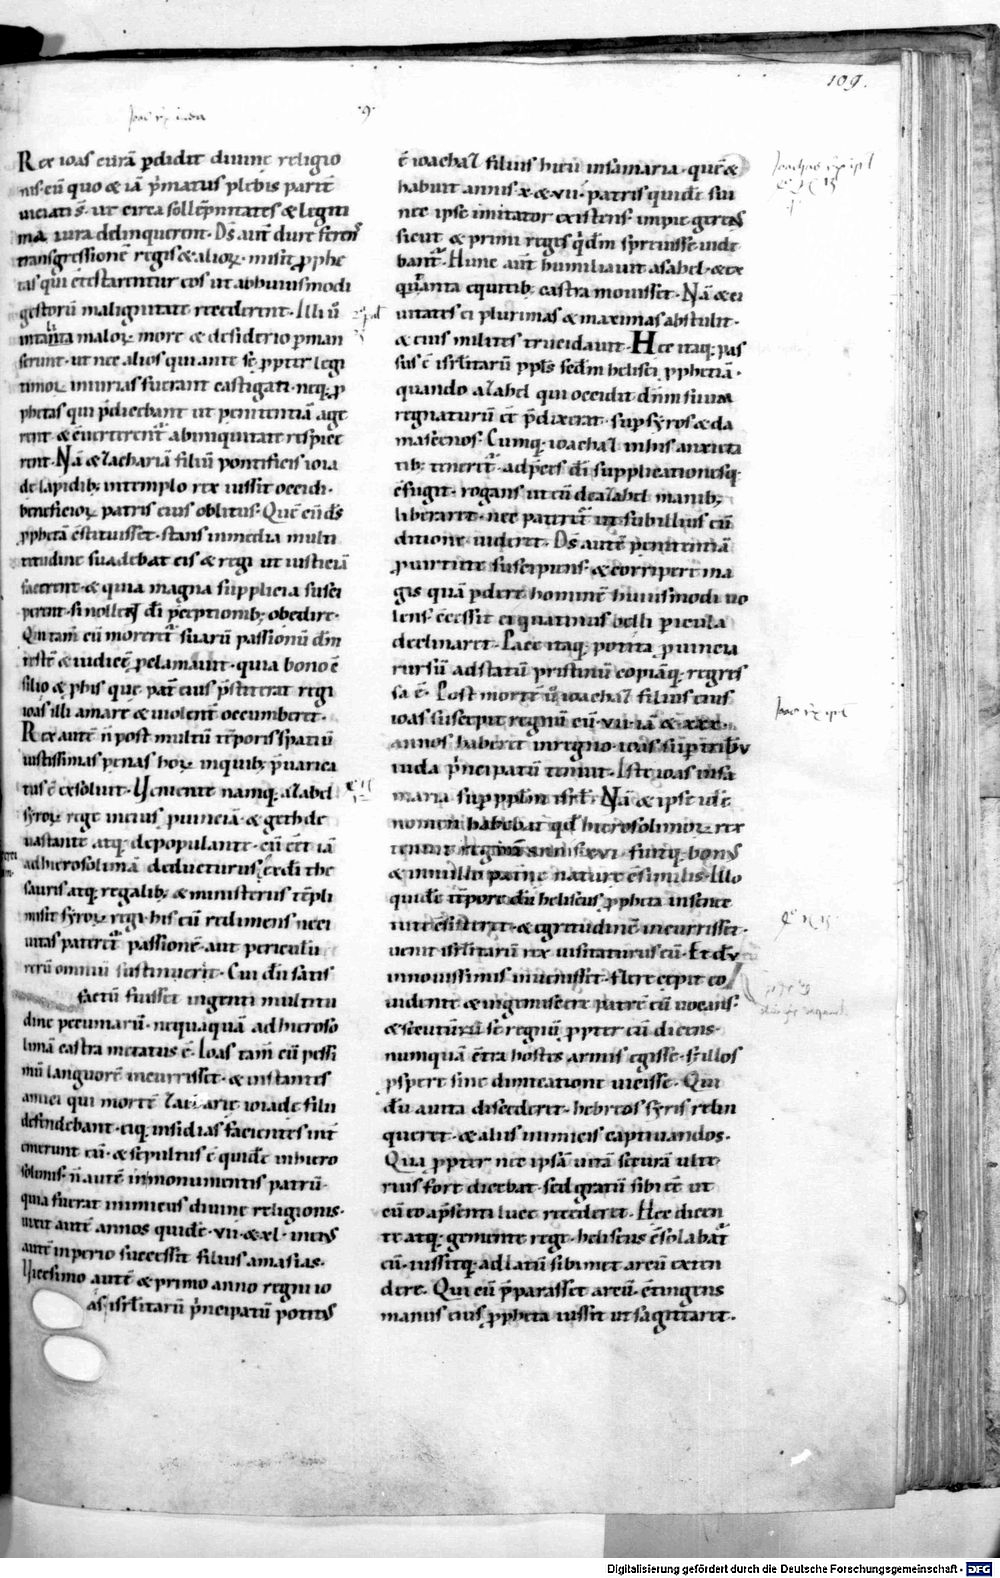 109.
·9·
Rex ioas curā ꝑdidit diuine religio
nis· cū quo & iā p̄matus plebis parit̄
uiciati s̄· ut circa sollēpnitates & legiti
ma iura delinquerent· Ds̄ aut̄ dure ferens
transgressionē regis & alioꝝ· misit ꝓphe
tas qui c̄testarentur eos ut ab huiusmodi
gestorū malignitate recederent· Illi ū
maloꝝ more & desiderio ꝑman
serunt· ut nec alios qui ante se ꝓpter legi
timoꝝ iniurias fuerant castigati· neq; ꝓ
phetas qui p̄dicebant ut penitentiā age
rent & c̄uerterent᷑ ab iniquitate respice
rent· Nā & zachariā filiū pontificis ioia
de lapidib; in templo rex iussit occidi·
beneficioꝝ patris eius oblitus· Quē cū ds̄
ꝓphetā c̄stituisset· stans in media multi
titudine suadebat eis & regi ut iusticiā
facerent· & quia magna supplicia susci
perent· si nollent dī p̄ceptionib; obedire·
Qui tam̄ cū moreret᷑ suarū passionū dm̄
testē & iudicē ꝓclamauit· quia bono c̄
silio & ꝓ his que pat̄ eius p̄stiterat regi
ioas illi amare & uiolent̄ occumberet·
Rex autē n̄ post multū tēporis spatiū
iustissimas penas hoꝝ in quib; p̄uarica
tus ē exsoluit· Veniente namq; azahel
syroꝝ rege in eius ꝓuinciā· & geth de
uastante atq; depopulante· cū eēt iā
ad hierosolimā deducturus· c̄ dī the
sauris atq; regalib; & ministeriis tēpli
misit syroꝝ regi· his eū redimens ne ci
uitas pateret᷑ passionē aut periculū
rerū omniū sustinuerit· Cui dū satis
factū fuisset ingenti multitu
dine pecuniarū· nequaquā ad hieroso
limā castra metatus ē· Ioas tam̄ cū pessi
mū languorē incurrisset· & instantes
amici qui mortē zachariae ioiade filii
defendebant· eiq; insidias facientes int̄
emerunt eū· & sepultus ē quidē in hiero
solimis· n̄ autē in monumentis patrū·
quia fuerat inimicus diuine religionis·
uixit autē annos quidē· vii· & xl· in eius
autē inperio successit filius amasias·
Vicesimo autē & primo anno regni io
as isrl̄itarū p̄ncipatū potitus
ē ioachaz filius hieu in samaria· quē &
habuit annis x· & vii· patris quidē sui
nec ipse imitator existens· impie gerens
sicut & primi reges q̄ dm̄ spreuisse uide
bant᷑· Hunc aut̄ humiliauit asahel· & ex
quanta equitib; castra mouisset· Nā & ci
uitates ei plurimas & maximas abstulit·
& eius milites trucidauit· Hec itaq; pas
sus ē isrl̄itarū ppl̄s scdm̄ helisei ꝓphetiā·
quando azahel qui occidit dn̄m suum
regnaturū eē p̄dixerat· sup syros & da
mascenos· Cumq; ioachaz in his anxieta
tib; teneret᷑· ad p̄ces dī supplicationesq;
c̄fugit· rogans ut eū de azahel manib;
liberaret· nec pateret᷑ ut sub illius eū
ditione uideret· Ds̄ autē penitentiā
ꝓ uirtute suscipiens· & corripere ma
gis quā ꝑdere hominē huiusmodi uo
lens· c̄cessit ei quatinus belli ꝑicula
declinaret· Pace itaq; potita ꝓuincia
rursū ad statū pristinū copiāq; regres
sa ē· Post mortē ū ioachaz filius eius
ioas suscepit regnū cū· vii· iā & xxx·
annos haberet in regno· ioas sup tribū
iuda p̄ncipatū tenuit· Iste ioas in sa
maria sup ppl̄m isrl̄· Nā & ipse idē
nomen habebat qd̄ hierosolimoꝝ rex
tenuit regnū annis xvi· fuitq; bonus
& in nullo patrie nature c̄similis· Illo
quidē tēpore dū heliseus ꝓpheta in senec
tute c̄sisteret· & egritudinē incurrisset·
uenit isrl̄itarū rex uisitaturus eū· Et dū
in nouissimis inuenisset· flere cepit eo
uidente & ingemiscere patrē eū uocans·
& secuturū se regnū ꝓpter eū dicens·
numquā c̄tra hostes armis egisse· s; illos
ꝓspere sine dimicatione uicisse· Qui
dū a uita discederet· hebreos syris relin
queret· & aliis inimicis captiuandos·
Qua ꝓpter nec ipsā uitā securā ulte
rius fore dicebat· sed gratū sibi eē ut
cū eo a p̄senti luce recederet· Hec dicen
te atq; gemente rege· heliseus c̄solabat᷑
eū· iussitq; ad latū sibimet arcū exten
dere· Qui cū p̄parasset arcū· c̄tingens
manus eius ꝓpheta iussit ut sagittaret·
Digitalisierung gefördert durch die Deutsche Forschungsgemeinschaft - DFG